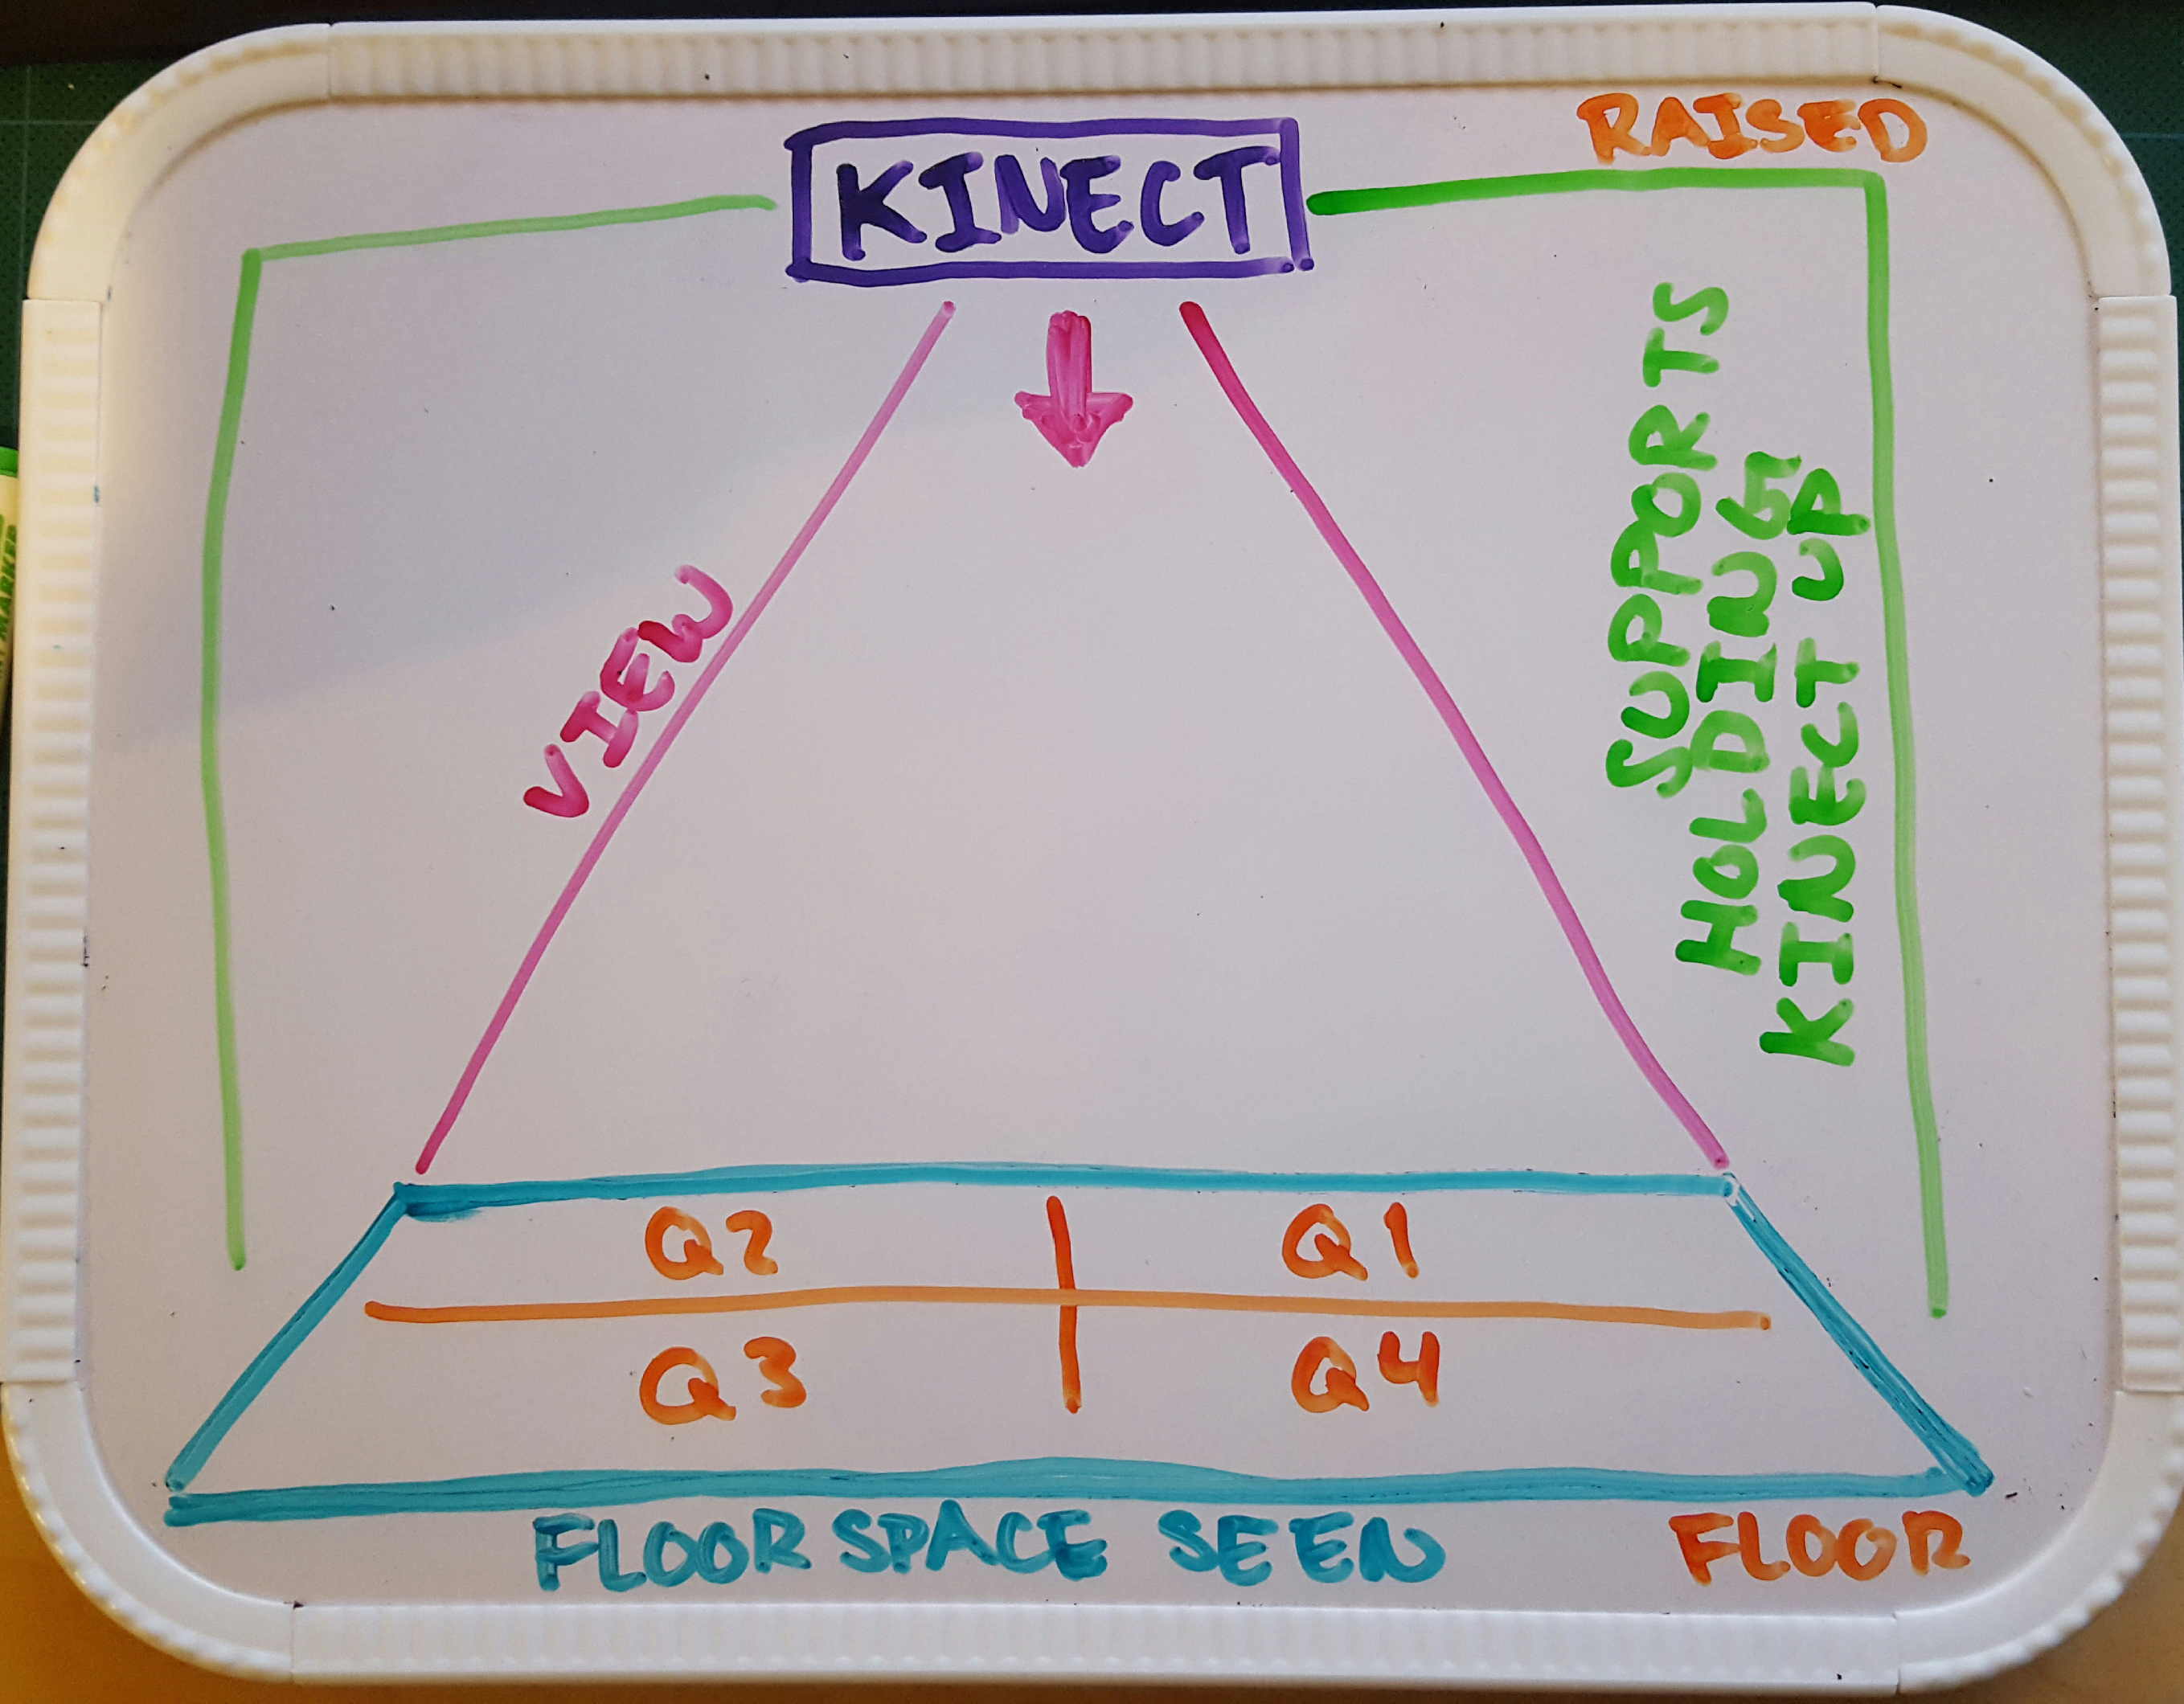 RAISED
KINECT
SUPPORTS
HOLDING
KINECT UP
VIEW
Q2 Q1
Q3 Q4
FLOOR SPACE SEEN
FLOOR
MARKER